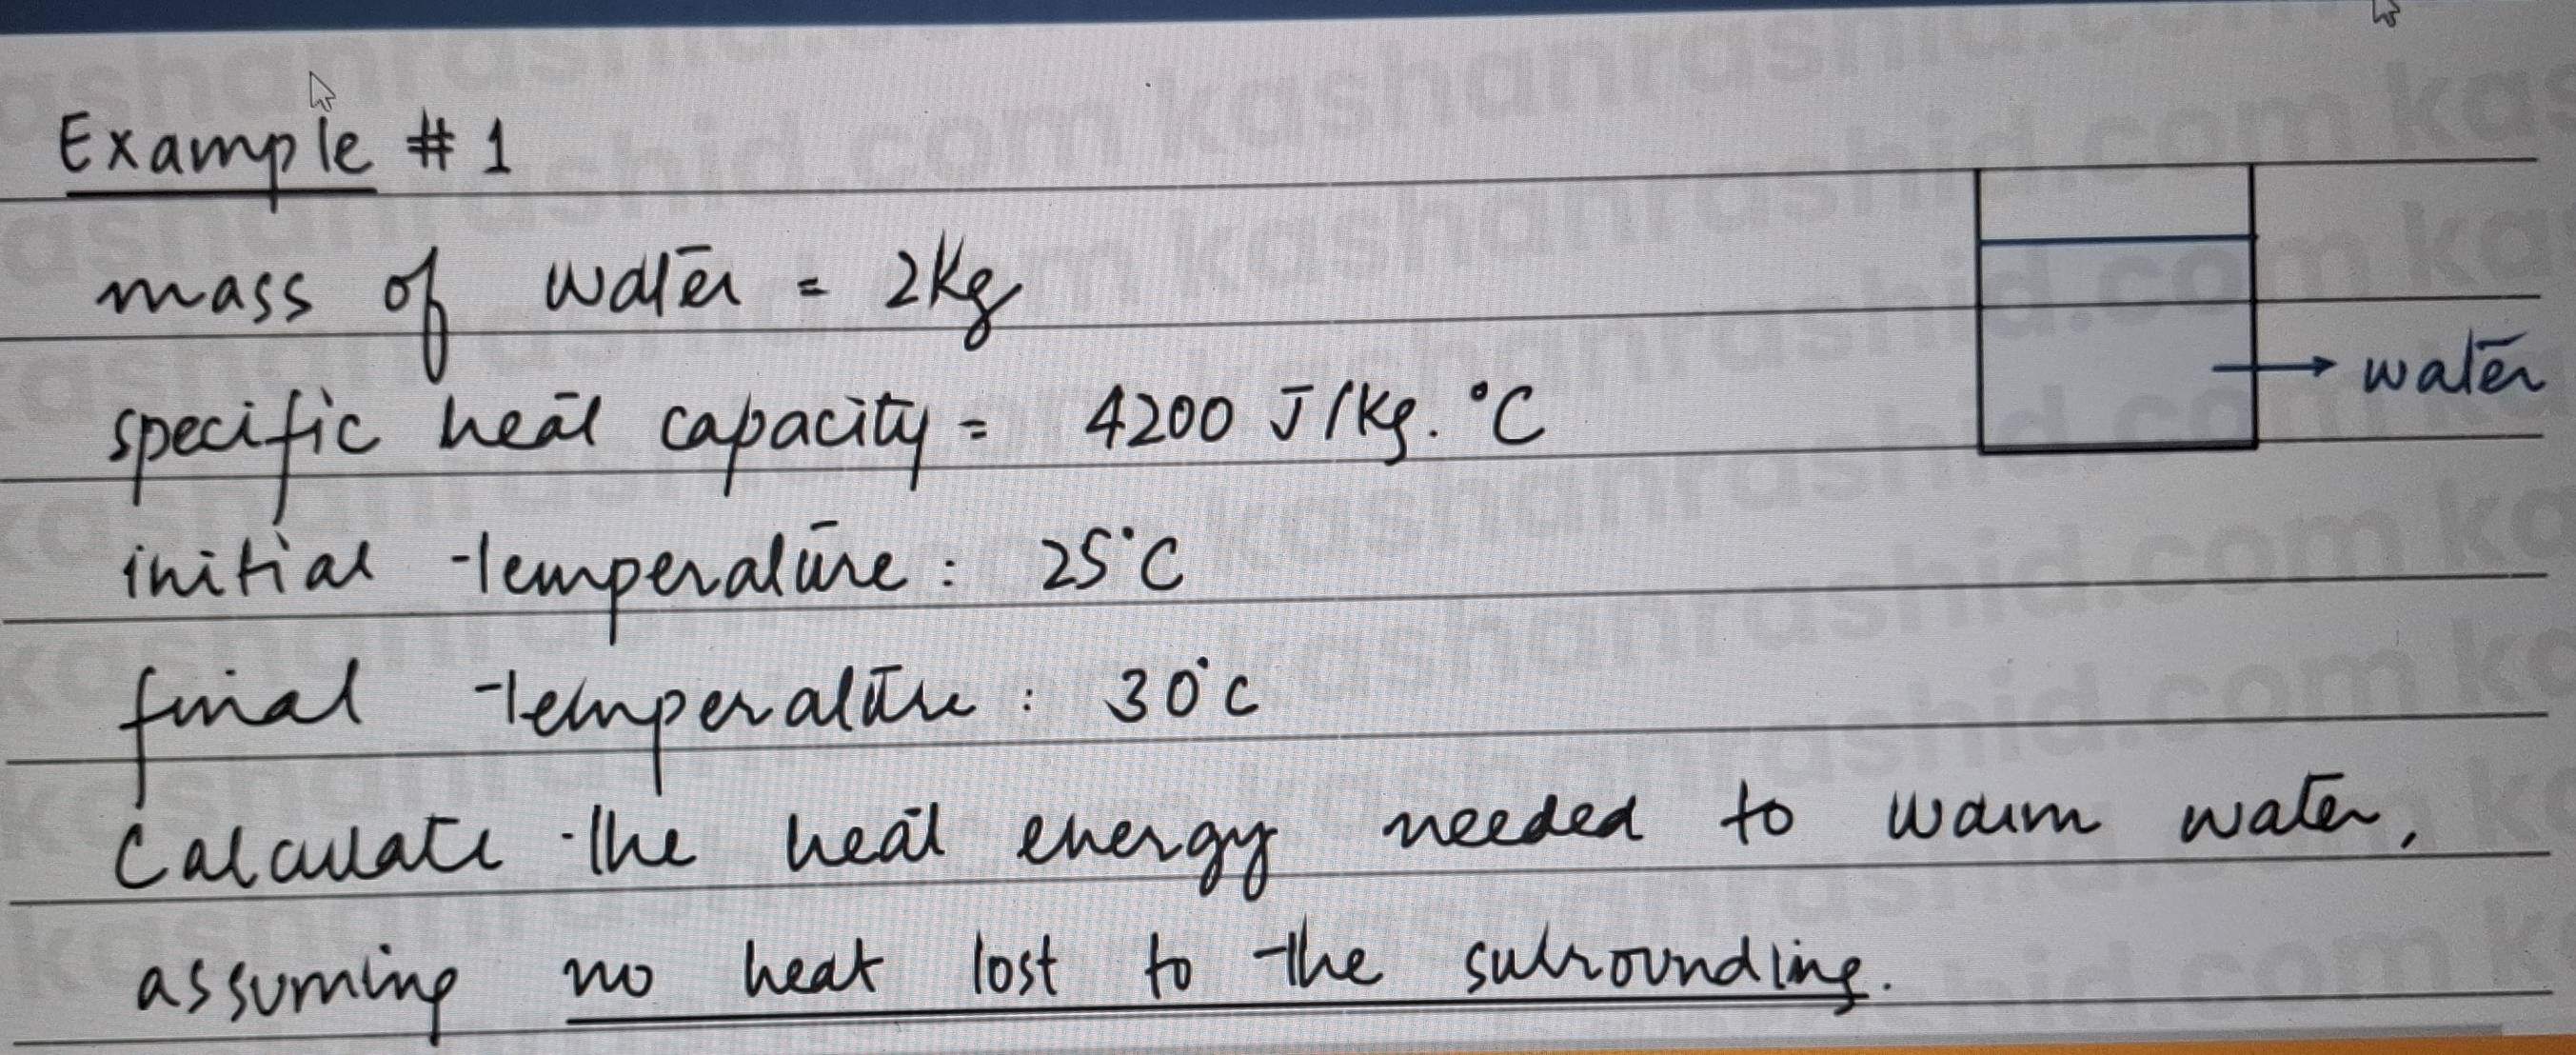 Example # 1
mass of water = 2Kg
specific heat capacity = 4200 J/Kg. °C
water
initial temperature : 25°C
final temperature : 30°C
Calculate the heat energy needed to warm water,
assuming no heat lost to the surrounding.
kashanrashid.com